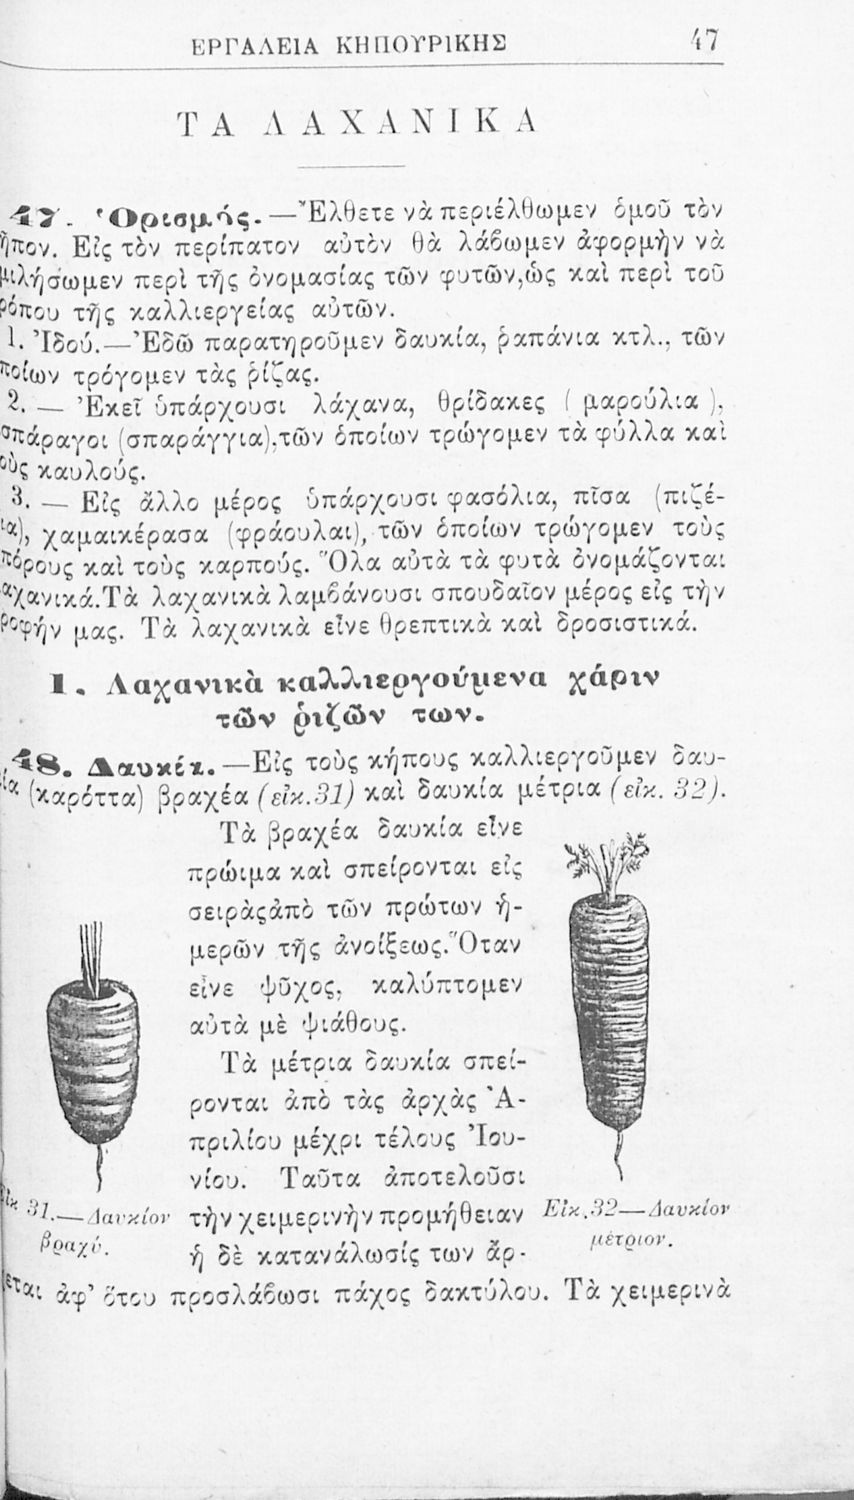 ΕΡΓΑΛΕΙΑ ΚΗΠΟΥΡΙΚΗΣ 47
ΤΑ ΛΑΧΑΝΙΚΑ
47. Ὁρισμός.—Ἔλθετε νὰ περιέλθωμεν ὁμοῦ τὸν
ῆπον. Εἰς τὸν περίπατον αὐτὸν θὰ λάβωμεν ἀφορμὴν νὰ
μιλήσωμεν περὶ τῆς ὀνομασίας τῶν φυτῶν,ὡς καὶ περὶ τοῦ
ρόπου τῆς καλλιεργείας αὐτῶν.
1. Ἰδού.—Ἐδῶ παρατηροῦμεν δαυκία, ῥαπάνια κτλ., τῶν
ποίων τρόγομεν τὰς ῥίζας.
2. — Ἐκεῖ ὑπάρχουσι λάχανα, θρίδακες ( μαρούλια ),
σπάραγοι (σπαράγγια),τῶν ὁποίων τρώγομεν τὰ φύλλα καὶ
οὺς καυλούς.
3. — Εἰς ἄλλο μέρος ὑπάρχουσι φασόλια, πῖσα (πιζέ-
ια), χαμαικέρασα (φράουλαι), τῶν ὁποίων τρώγομεν τοὺς
πόρους καὶ τοὺς καρπούς. Ὅλα αὐτὰ τὰ φυτὰ ὀνομάζονται
αχανικά.Τὰ λαχανικὰ λαμβάνουσι σπουδαῖον μέρος εἰς τὴν
ροφήν μας. Τὰ λαχανικὰ εἶνε θρεπτικὰ καὶ δροσιστικά.
1. Λαχανικὰ καλλιεργούμενα χάριν
τῶν ῥιζῶν των.
48. Δαυκία.—Εἰς τοὺς κήπους καλλιεργοῦμεν δαυ-
ία (καρόττα) βραχέα (εἰκ.31) καὶ δαυκία μέτρια (εἰκ. 32).
Τὰ βραχέα δαυκία εἶνε
πρώιμα καὶ σπείρονται εἰς
σειρὰςἀπὸ τῶν πρώτων ἡ-
μερῶν τῆς ἀνοίξεως.Ὅταν
εἶνε ψῦχος, καλύπτομεν
αὐτὰ μὲ ψιάθους.
Τὰ μέτρια δαυκία σπεί-
ρονται ἀπὸ τὰς ἀρχὰς Ἀ-
πριλίου μέχρι τέλους Ἰου-
νίου. Ταῦτα ἀποτελοῦσι
τὴν χειμερινὴν προμήθειαν
ἡ δὲ κατανάλωσίς των ἄρ-
Εἰκ 31.—Δαυκίον
βραχύ.
Εἰκ.32—Δαυκίον
μέτριον.
εται ἀφ’ ὅτου προσλάβωσι πάχος δακτύλου. Τὰ χειμερινὰ